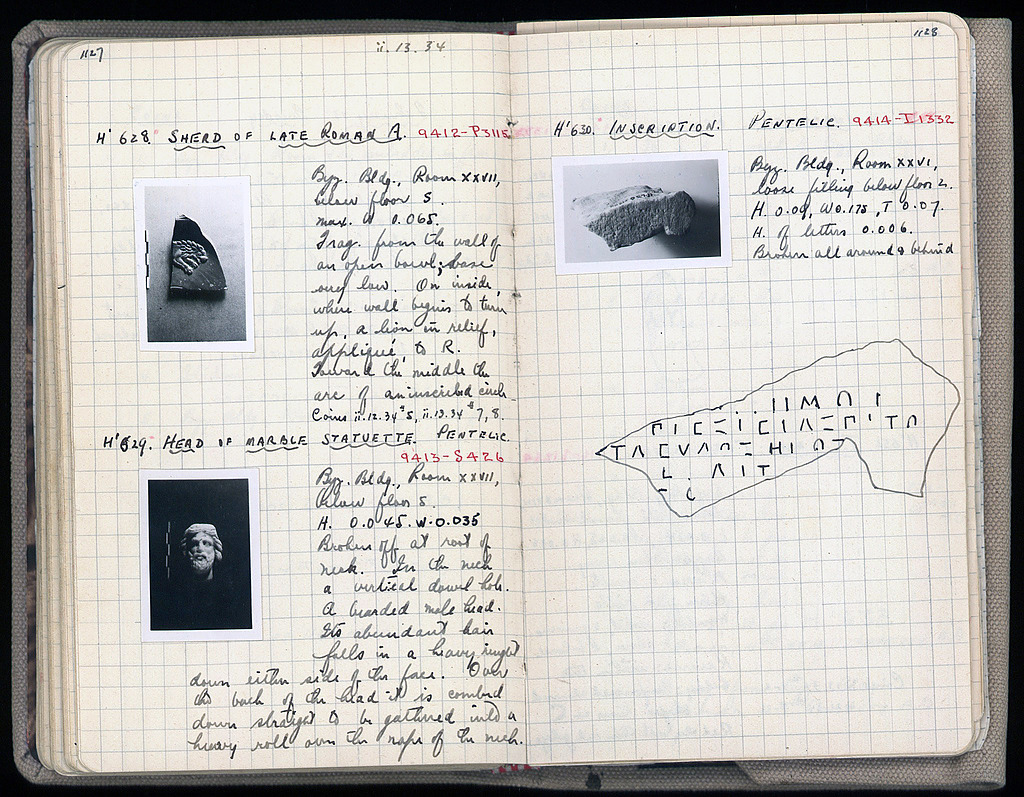 1127
ii.13.34
H' 628. SHERD OF LATE ROMAN A. 9412-P3115
Byz. Bldg., Room XXVII,
below floor 5.
max. W 0.065.
Frag. from the wall of
an open bowl; base
very low. On inside,
where wall begins to turn
up, a lion in relief,
appliqué, to R.
Toward the middle the
arc of an inscribed circle
Coins ii.12.34 #5, ii.13.34 #7, 8.
H' 629. HEAD OF MARBLE STATUETTE. PENTELIC.
9413-S426
Byz. Bldg., Room XXVII,
below floor 5.
H. 0.045. W. 0.035
Broken off at root of
neck. In the neck
a vertical dowel hole.
A bearded male head.
Its abundant hair
falls in a heavy
down either side of the face. Over
the back of the head it is combed
down straight to be gathered into a
heavy roll over the nape of the neck.
1128
H' 630. INSCRIPTION. PENTELIC. 9414-I1332
Byz. Bldg., Room XXVI,
loose filling below floor 2.
H. 0.09, W 0.175, T 0.07.
H. of letters 0.006.
Broken all around & behind